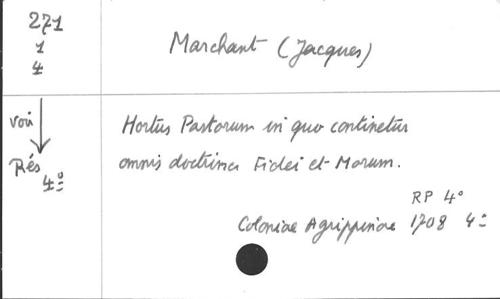 271
1
4
Marchant (Jacques)
voir
Rés
4º
Hortus Pastorum in quo continetur
omnis doctrina Fidei et Morum.
RP 4º
Coloniae Agrippinae 1708 4º